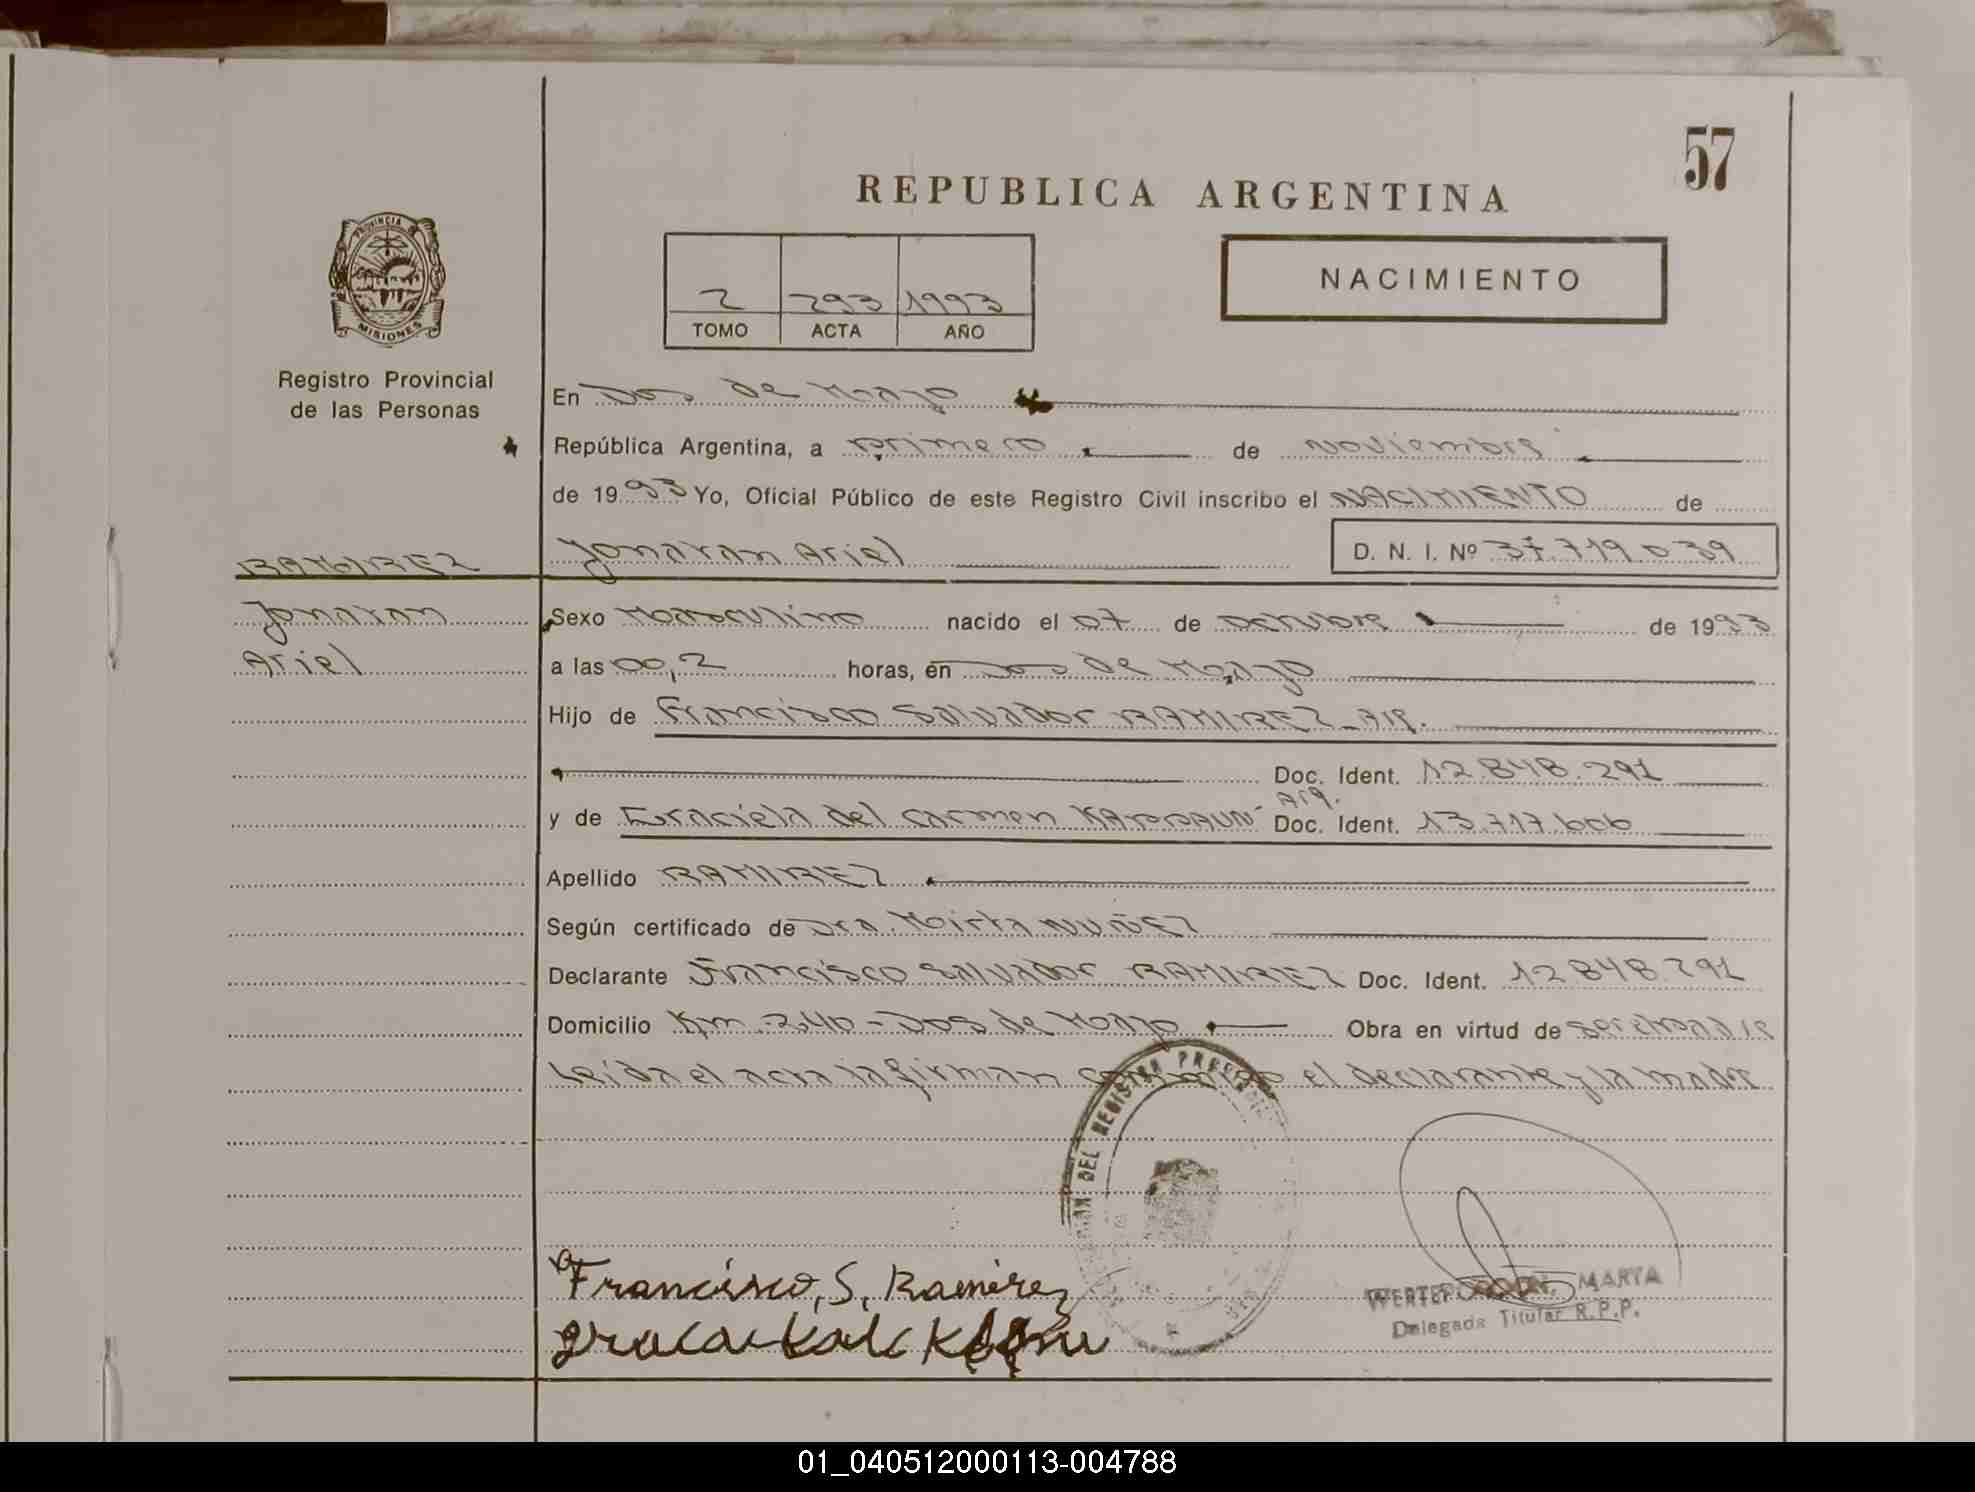 57
REPUBLICA ARGENTINA
PROVINCIA DE
MISIONES
NACIMIENTO
2 293 1993
TOMO ACTA AÑO
Registro Provincial
de las Personas
En Dos de Mayo
República Argentina, a primero de noviembre
de 1993 Yo, Oficial Público de este Registro Civil inscribo el NACIMIENTO de
RAMIREZ
Jonatan Ariel D. N. I. Nº 37.719.039
Jonatan
Ariel
Sexo Masculino nacido el 07 de octubre de 1993
a las 00,2 horas, en Dos de Mayo
Hijo de Francisco Salvador RAMIREZ - Arg.
Doc. Ident. 12.848.291
y de Graciela del Carmen Arg. Doc. Ident. 13.717.606
Apellido RAMIREZ
Según certificado de Dra. Mirta NUÑEZ
Declarante Francisco Salvador RAMIREZ Doc. Ident. 12.848.291
Domicilio Km. 240 - Dos de Mayo Obra en virtud de
Leída el acta la firman conmigo el declarante y la madre
DEL REGISTRO
Francisco, S, Ramirez
MARTA
Delegada Titular R.P.P.
01_040512000113-004788